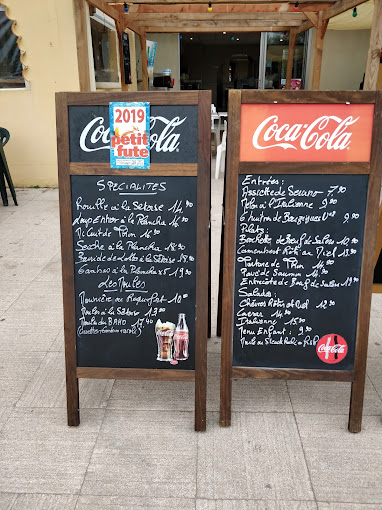 Coca-Cola
2019
petit futé
SPECIALITES
Rouille à la Setoise 14.90
Loup Entier à la Plancha 16.90
Mi Cuit de Thon 16.90
Seche à la Plancha 18.90
Baudroie de Lotte à la Setoise 19.90
Gambas à la Plancha x5 19.90
Les Moules
Mariniere ou Roquefort 10.00
Moules à la Setoise 13.90
Moules du BAHO 17.90
Coca-Cola
Entrées:
Assiette de Serano 7.90
Melon à l'Italienne 9.90
6 huitres de Bouzigues N°3 9.90
Plats:
Brochette de Bœuf de Salers 10.90
Camembert Roti au Miel 13.90
Tartare de Thon 16.90
Pavé de Saumon 14.90
Entrecôte de Bœuf de Salers 19.90
Salades:
Chèvres Rotis et Miel 12.90
Cesar 14.90
Italienne 15.90
Menu Enfant: 9.90
Moule ou Steack Haché ou Fish
Coca-Cola